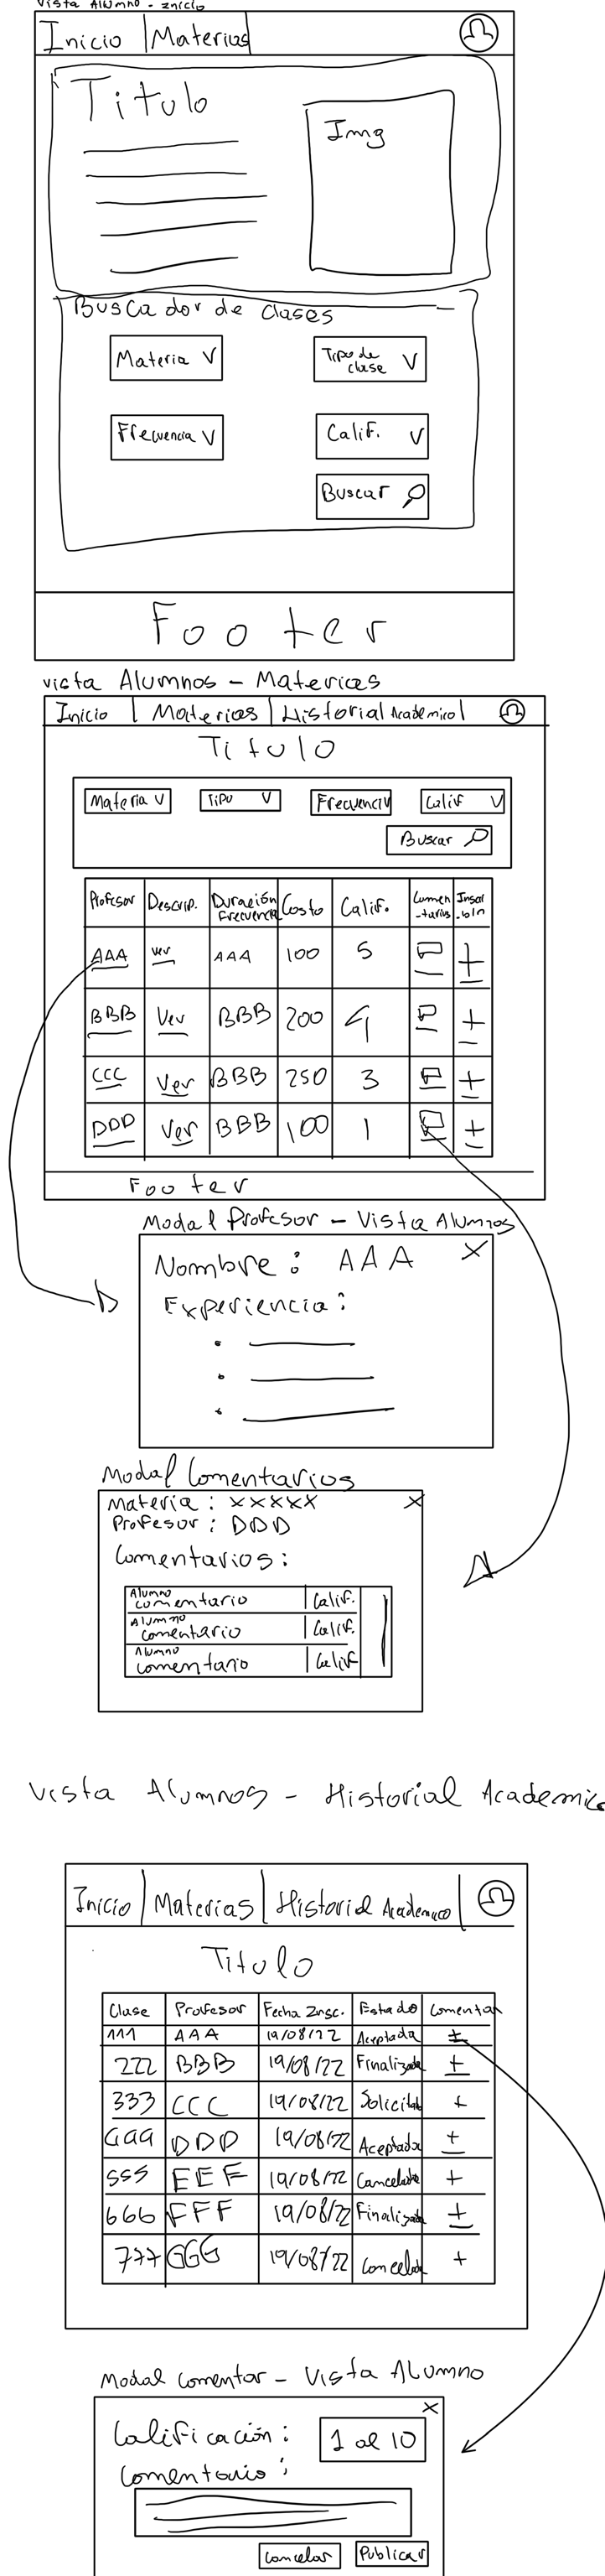 Vista Alumno - Inicio
Inicio Materias
Titulo
Img
Buscador de clases
Materia V Tipo de clase V
Frecuencia V Calif. V
Buscar
Footer
vista Alumnos - Materias
Inicio Materias Historial Academico
Titulo
Materia V Tipo V Frecuenci V Calif V
Buscar
Profesor Descrip. Duración Frecuencia Costo Calif. Comen-tarios Inscr
AAA ver AAA 100 5 +
BBB Ver BBB 200 4 +
CCC Ver BBB 250 3 +
DDD Ver BBB 100 1 +
Footer
Modal Profesor - Vista Alumnos
Nombre: AAA X
Experiencia:
Modal Comentarios
Materia: XXXXX X
Profesor: DDD
Comentarios:
Alumno
comentario Calif.
Alumno
comentario Calif.
Alumno
comentario Calif
Vista Alumnos - Historial Academico
Inicio Materias Historial Academico
Titulo
Clase Profesor Fecha Insc. Estado Comentar
111 AAA 19/08/22 Aceptada +
222 BBB 19/08/22 Finalizada +
333 CCC 19/08/22 Solicitada +
444 DDD 19/08/22 Aceptada +
555 EEF 19/08/22 Cancelada +
666 FFF 19/08/22 Finalizada +
777 GGG 19/08/22 Cancelada +
Modal comentar - Vista Alumno
X
Calificación: 1 al 10
Comentario:
Cancelar Publicar